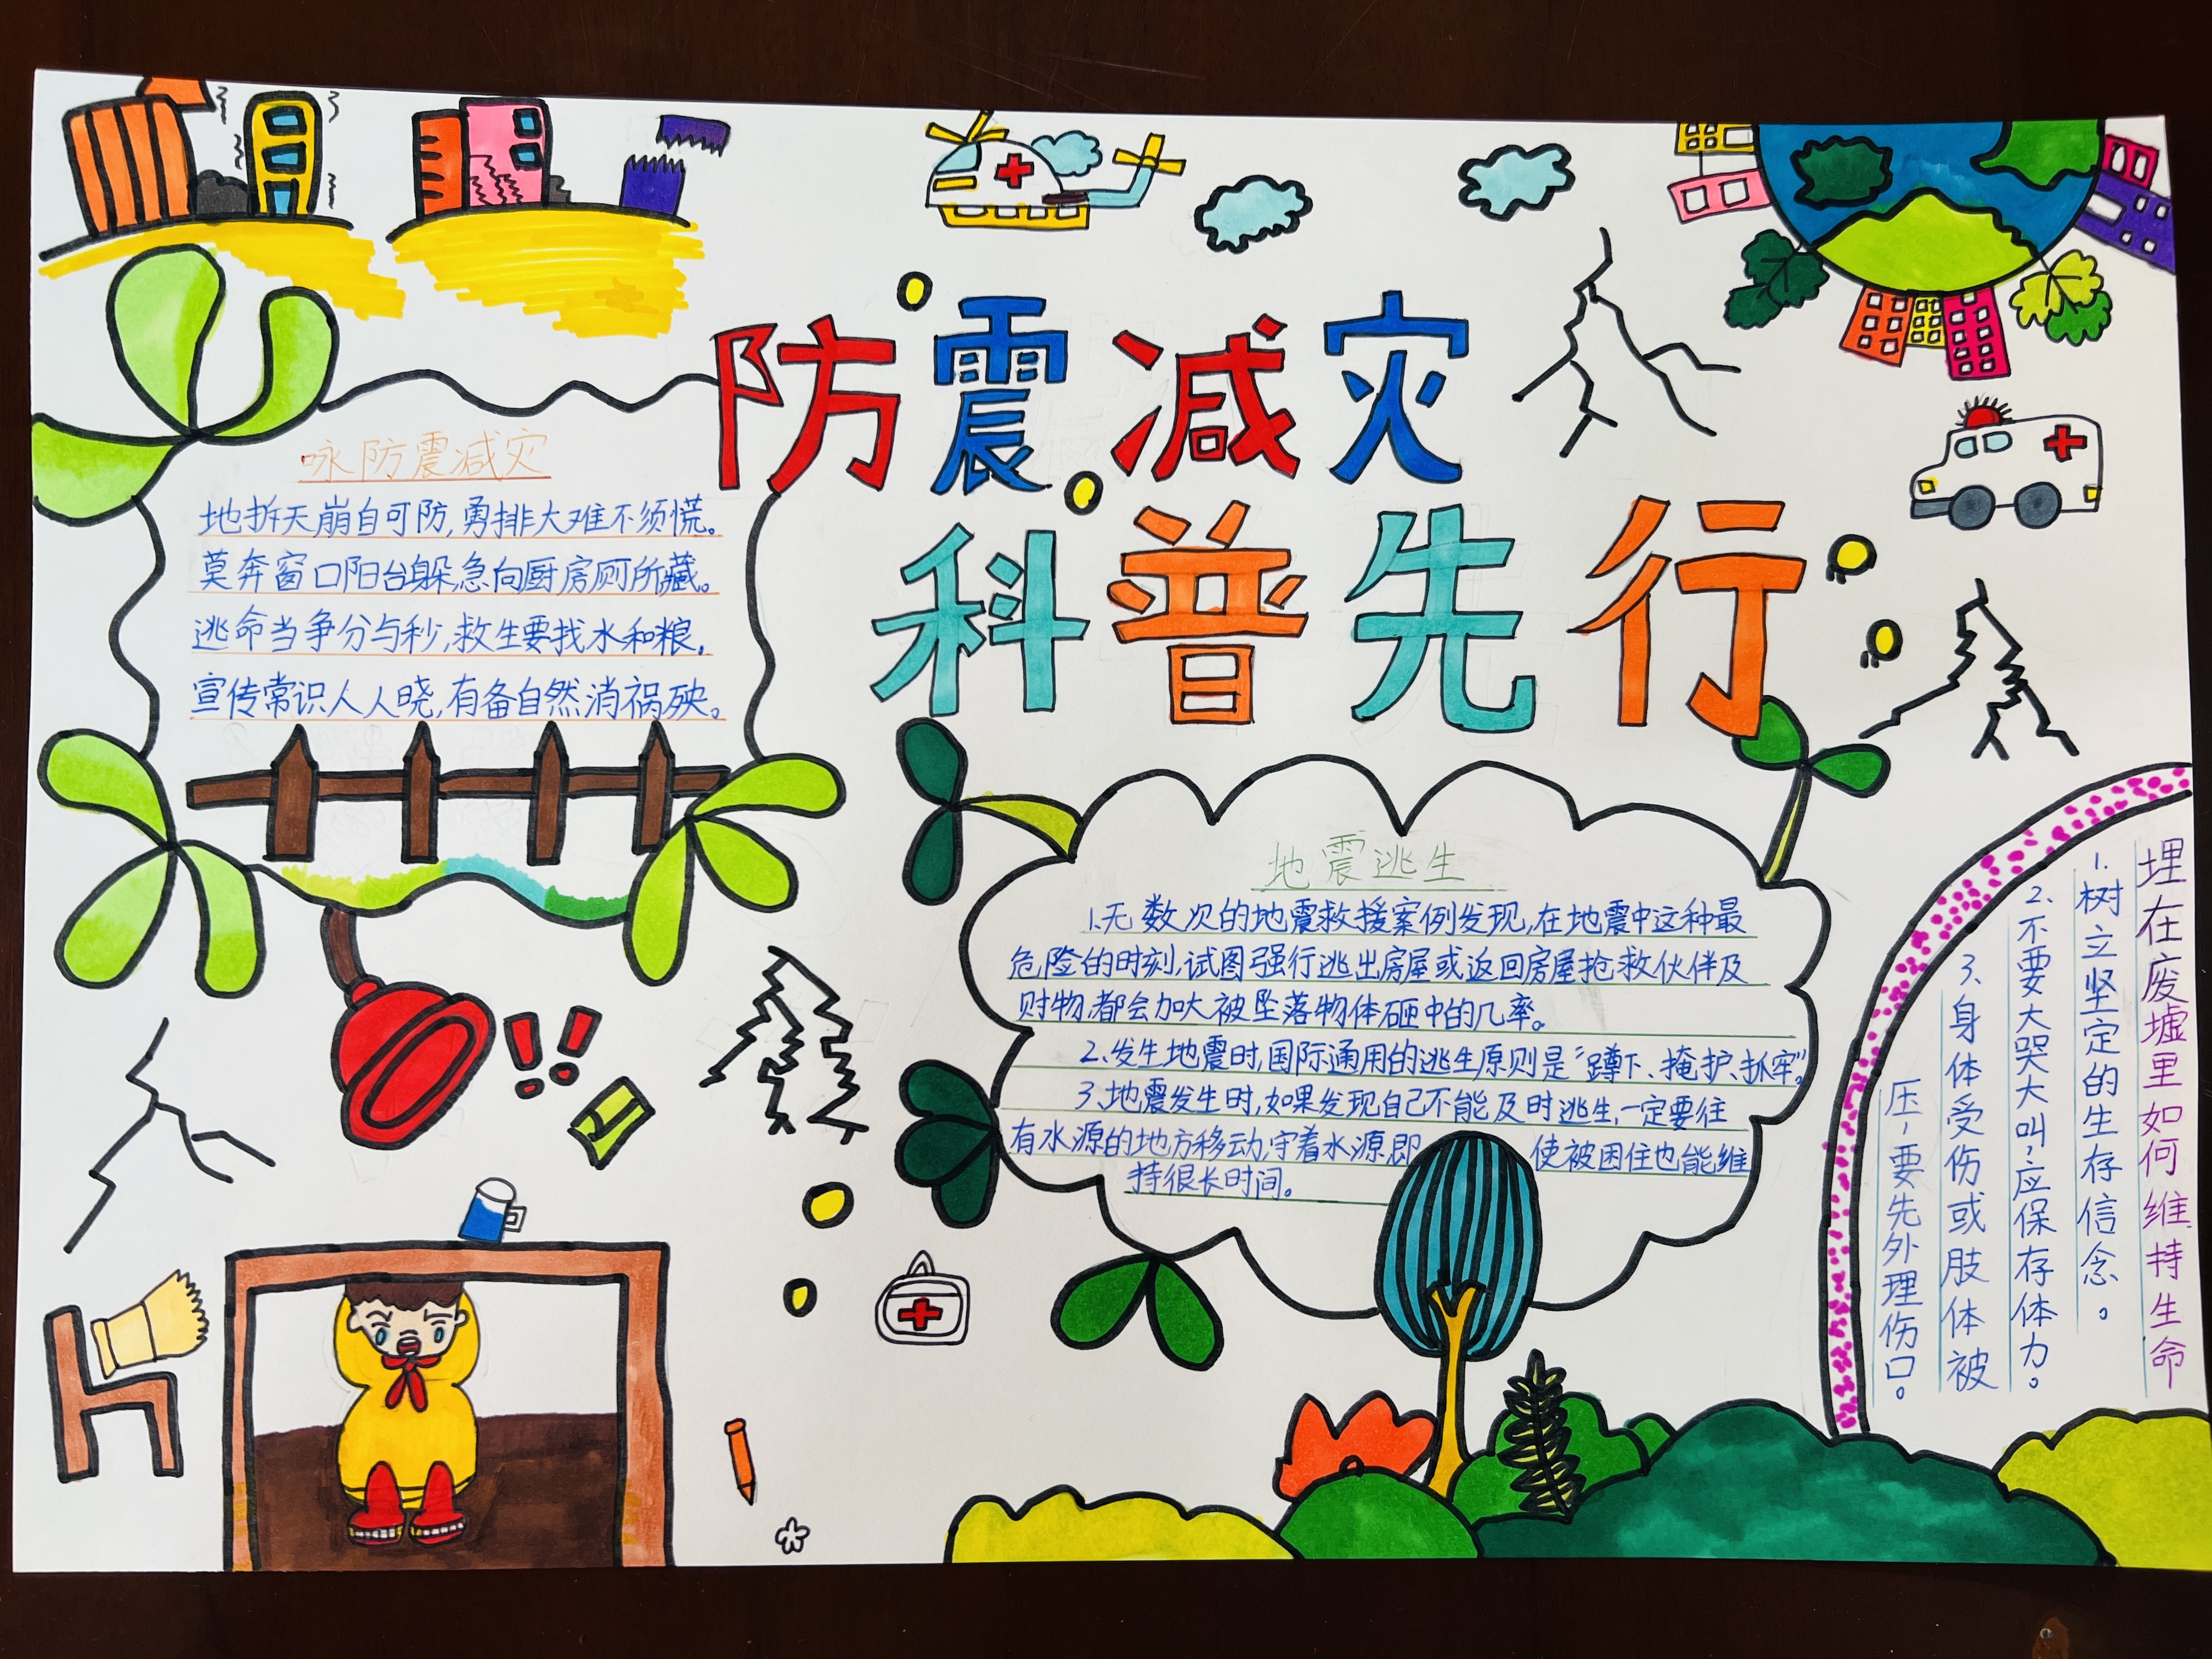 防震减灾
科普先行
咏防震减灾
地拆天崩自可防,勇排大难不须慌。
莫奔窗口阳台躲,急向厨房厕所藏。
逃命当争分与秒,救生要找水和粮。
宣传常识人人晓,有备自然消祸殃。
地震逃生
1.无数次的地震救援案例发现,在地震中这种最
危险的时刻,试图强行逃出房屋或返回房屋抢救伙伴及
财物,都会加大被坠落物体砸中的几率。
2、发生地震时,国际通用的逃生原则是“蹲下、掩护、抓牢”。
3、地震发生时,如果发现自己不能及时逃生,一定要往
有水源的地方移动,守着水源,即使被困住也能维
持很长时间。
埋在废墟里如何维持生命
1.树立坚定的生存信念。
2、不要大哭大叫,应保存体力。
3、身体受伤或肢体被
压,要先外理伤口。